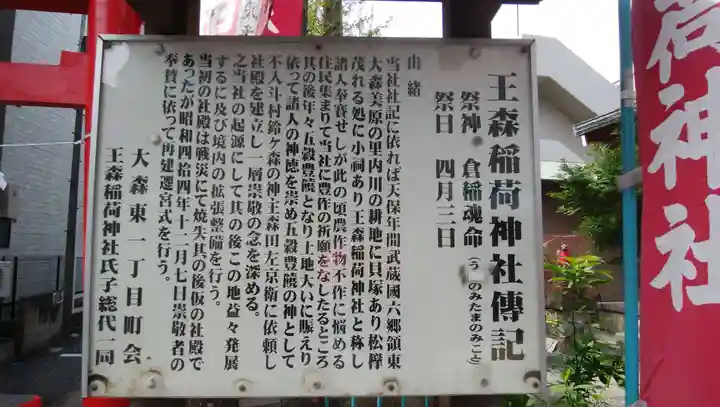 王森稲荷神社傳記
祭神 倉稲魂命(うかのみたまのみこと)
祭日 四月三日
由緒
当社社記に依れば天保年間武蔵國六郷領東
大森美原の里内川の耕地に貝塚あり松欅
茂れる処に小祠あり王森稲荷神社と称し
諸人奉賽せしが此の頃農作物不作に悩める
住民集まりて当社に豊作の祈願をなしたるところ
其の後年々五穀豊饒となり土地大いに賑えり
依って諸人の神徳を崇め五穀豊饒の神として
不入斗村鈴ヶ森の神主森田左京衛に依頼し
社殿を建立し一層崇敬の念を深める。
之当社の起源にして其の後この地益々発展
するに及び境内の拡張整備を行う。
当初の社殿は戦災にて焼失其の後仮の社殿で
あったが昭和四拾四年十二月七日崇敬者の
奉賛に依って再建遷宮式を行う。
大森東一丁目町会
王森稲荷神社氏子総代一同
荷神社